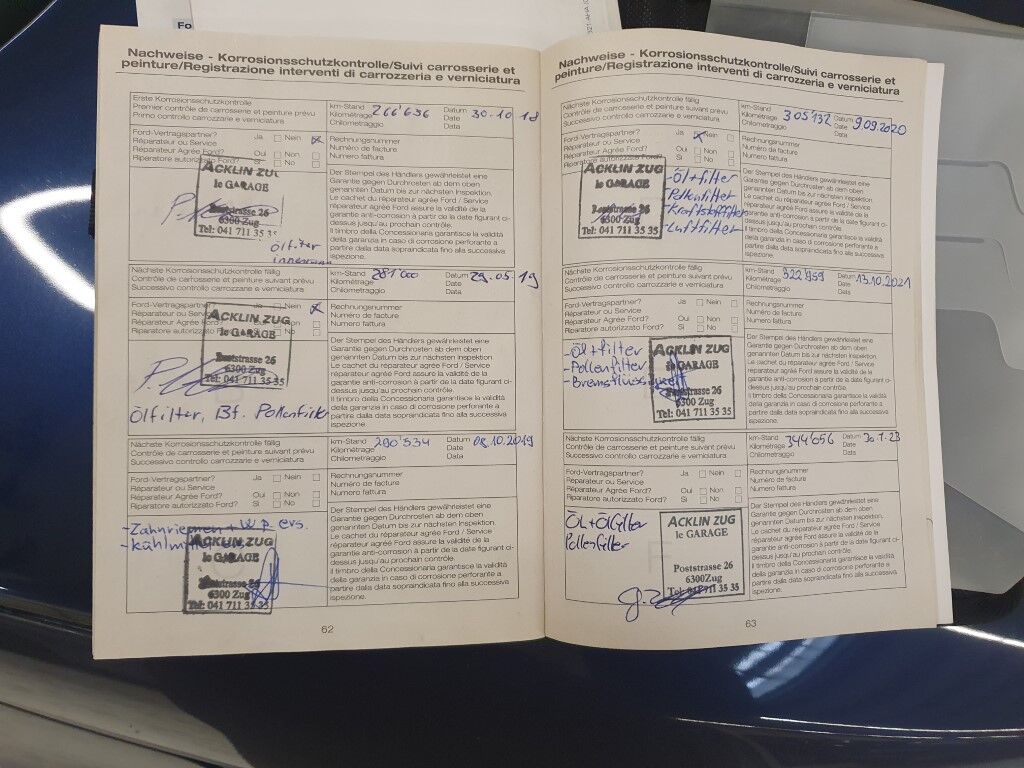 Fo
Nachweise - Korrosionsschutzkontrolle/Suivi carrosserie et
peinture/Registrazione interventi di carrozzeria e verniciatura
Erste Korrosionsschutzkontrolle
Premier contrôle de carrosserie et peinture prévu
Primo controllo carrozzerie e verniciatura
km-Stand
Kilométrage
Chilometraggio
266'636
Datum
Date
Data
30.10.18
Ford-Vertragspartner? Ja Nein
Réparateur ou Service
Réparateur Agréé Ford? Oui Non
Riparatore autorizzato Ford? Si No
Rechnungsnummer
Numéro de facture
Numero fattura
ACKLIN ZUG
le GARAGE
Poststrasse 26
6300 Zug
Tel: 041 711 35 35
Ölfilter
Der Stempel des Händlers gewährleistet eine
Garantie gegen Durchrosten ab dem oben
genannten Datum bis zur nächsten Inspektion.
Le cachet du réparateur agréé Ford / Service
réparateur agréé Ford assure la validité de la
garantie anti-corrosion à partir de la date figurant ci-
dessus jusqu'au prochain contrôle.
Il timbro della Concessionaria garantisce la validità
della garanzia in caso di corrosione perforante a
partire dalla data sopraindicata fino alla successiva
ispezione.
Nächste Korrosionsschutzkontrolle fällig
Contrôle de carrosserie et peinture suivant prévu
Successivo controllo carrozzerie e verniciatura
km-Stand
Kilométrage
Chilometraggio
281'000
Datum
Date
Data
29.05.19
Ford-Vertragspartner? Ja Nein
Réparateur ou Service
Réparateur Agréé Ford? Oui Non
Riparatore autorizzato Ford? Si No
Rechnungsnummer
Numéro de facture
Numero fattura
ACKLIN ZUG
le GARAGE
Poststrasse 26
6300 Zug
Tel: 041 711 35 35
Ölfilter, Bf. Pollenfilter
Der Stempel des Händlers gewährleistet eine
Garantie gegen Durchrosten ab dem oben
genannten Datum bis zur nächsten Inspektion.
Le cachet du réparateur agréé Ford / Service
réparateur agréé Ford assure la validité de la
garantie anti-corrosion à partir de la date figurant ci-
dessus jusqu'au prochain contrôle.
Il timbro della Concessionaria garantisce la validità
della garanzia in caso di corrosione perforante a
partire dalla data sopraindicata fino alla successiva
ispezione.
Nächste Korrosionsschutzkontrolle fällig
Contrôle de carrosserie et peinture suivant prévu
Successivo controllo carrozzerie e verniciatura
km-Stand
Kilométrage
Chilometraggio
290'534
Datum
Date
Data
08.10.2019
Ford-Vertragspartner? Ja Nein
Réparateur ou Service
Réparateur Agréé Ford? Oui Non
Riparatore autorizzato Ford? Si No
Rechnungsnummer
Numéro de facture
Numero fattura
-Zahnriemen + W.P. ers.
ACKLIN ZUG
le GARAGE
Poststrasse 26
6300 Zug
Tel: 041 711 35 35
Der Stempel des Händlers gewährleistet eine
Garantie gegen Durchrosten ab dem oben
genannten Datum bis zur nächsten Inspektion.
Le cachet du réparateur agréé Ford / Service
réparateur agréé Ford assure la validité de la
garantie anti-corrosion à partir de la date figurant ci-
dessus jusqu'au prochain contrôle.
Il timbro della Concessionaria garantisce la validità
della garanzia in caso di corrosione perforante a
partire dalla data sopraindicata fino alla successiva
ispezione.
62
Nachweise - Korrosionsschutzkontrolle/Suivi carrosserie et
peinture/Registrazione interventi di carrozzeria e verniciatura
Nächste Korrosionsschutzkontrolle fällig
Contrôle de carrosserie et peinture suivant prévu
Successivo controllo carrozzerie e verniciatura
km-Stand
Kilométrage
Chilometraggio
305'132
Datum
Date
Data
9.09.2020
Ford-Vertragspartner? Ja Nein
Réparateur ou Service
Réparateur Agréé Ford? Oui Non
Riparatore autorizzato Ford? Si No
Rechnungsnummer
Numéro de facture
Numero fattura
ACKLIN ZUG
le GARAGE
Poststrasse 26
6300 Zug
Tel: 041 711 35 35
-Öl+filter
-Pollenfilter
-Kraftstofffilter
-Luftfilter
Der Stempel des Händlers gewährleistet eine
Garantie gegen Durchrosten ab dem oben
genannten Datum bis zur nächsten Inspektion.
Le cachet du réparateur agréé Ford / Service
réparateur agréé Ford assure la validité de la
garantie anti-corrosion à partir de la date figurant ci-
dessus jusqu'au prochain contrôle.
Il timbro della Concessionaria garantisce la validità
della garanzia in caso di corrosione perforante a
partire dalla data sopraindicata fino alla successiva
ispezione.
Nächste Korrosionsschutzkontrolle fällig
Contrôle de carrosserie et peinture suivant prévu
Successivo controllo carrozzerie e verniciatura
km-Stand
Kilométrage
Chilometraggio
322'959
Datum
Date
Data
13.10.2021
Ford-Vertragspartner? Ja Nein
Réparateur ou Service
Réparateur Agréé Ford? Oui Non
Riparatore autorizzato Ford? Si No
Rechnungsnummer
Numéro de facture
Numero fattura
-Öl+filter
-Pollenfilter
-Bremsflüssigkeit
ACKLIN ZUG
le GARAGE
Poststrasse 26
6300 Zug
Tel: 041 711 35 35
Der Stempel des Händlers gewährleistet eine
Garantie gegen Durchrosten ab dem oben
genannten Datum bis zur nächsten Inspektion.
Le cachet du réparateur agréé Ford / Service
réparateur agréé Ford assure la validité de la
garantie anti-corrosion à partir de la date figurant ci-
dessus jusqu'au prochain contrôle.
Il timbro della Concessionaria garantisce la validità
della garanzia in caso di corrosione perforante a
partire dalla data sopraindicata fino alla successiva
ispezione.
Nächste Korrosionsschutzkontrolle fällig
Contrôle de carrosserie et peinture suivant prévu
Successivo controllo carrozzerie e verniciatura
km-Stand
Kilométrage
Chilometraggio
344'656
Datum
Date
Data
30.1.23
Ford-Vertragspartner? Ja Nein
Réparateur ou Service
Réparateur Agréé Ford? Oui Non
Riparatore autorizzato Ford? Si No
Rechnungsnummer
Numéro de facture
Numero fattura
Öl+Ölfilter
Pollenfilter
ACKLIN ZUG
le GARAGE
Poststrasse 26
6300Zug
Tel: 041 711 35 35
Der Stempel des Händlers gewährleistet eine
Garantie gegen Durchrosten ab dem oben
genannten Datum bis zur nächsten Inspektion.
Le cachet du réparateur agréé Ford / Service
réparateur agréé Ford assure la validité de la
garantie anti-corrosion à partir de la date figurant ci-
dessus jusqu'au prochain contrôle.
Il timbro della Concessionaria garantisce la validità
della garanzia in caso di corrosione perforante a
partire dalla data sopraindicata fino alla successiva
ispezione.
63